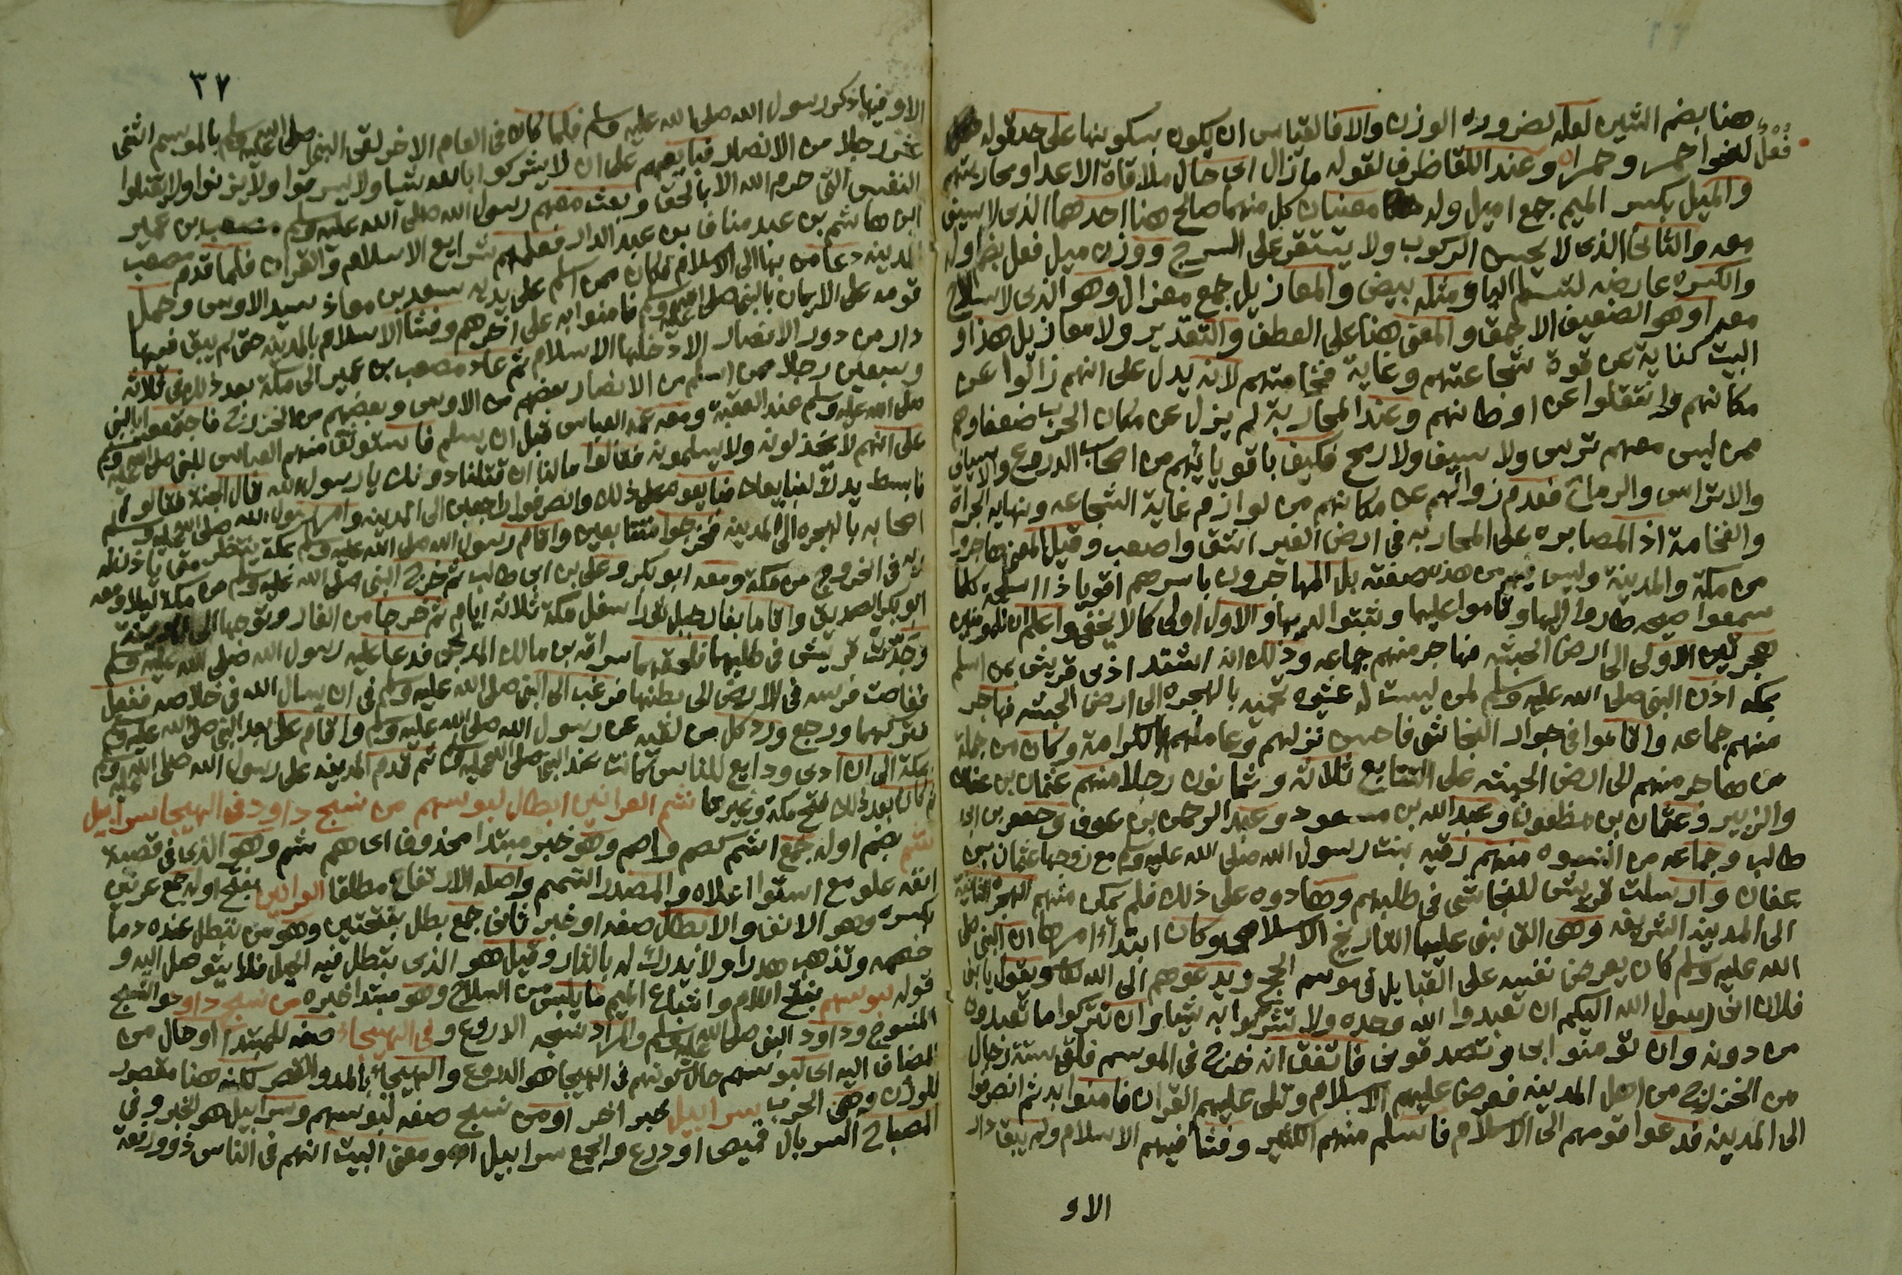 هنا بضم الشين لعله لضرورة الوزن والا فالقياس ان يكون بسكونها على حد قوله
فعل لنحوا حمر وحمراه وعند اللقا ظرف لقوله ما زال اى حال ملاقاة الاعدا ومحاربتهم
والميل بكسر الميم جمع اميل وله معنيان كل منهما صالح هنا احدهما الذى لا سيف
معه والثانى الذى لا يحسن الركوب ولا يستقر على السرج ووزن ميل فعل بضم اوله
والكسرة عارضه لتسلم اليا ومثله بيض والمعازيل جمع معزال وهو الذى لا سلاح
معه او هو الضعيف الاحمق والمعنى هنا على العطف والتقدير ولا معازيل هذا و
البيت كناية عن قوة شجاعتهم وغاية فخامتهم لانه يدل على انهم زالوا عن
مكانهم وانتقلوا عن اوطانهم وعند المحاربة لم يزل عن مكان الحرب ضعفاوهم
ممن ليس معهم ترس ولا سيف ولا رمح فكيف باقويائهم من اصحاب الدروع والاسياف
والاتراس والرماح فعدم زوالهم عن مكانهم من لوازم غاية الشجاعه ونهاية الجراة
والفخامة اذ المصابره على المحاربه فى ارض الغير اشق واصعب وقيل المعنى هاجروا
من مكة والمدينة وليس فيهم من هذه صفته بل المهاجرون باسرهم اقويا ذا اسلحة كلما
سمعوا صيحه طاروا اليها وقاموا عليها وثبتوا لديها والاول اولى كما لا يخفى واعلم ان للمومنين
هجرتين الاولى الى ارض الحبشه فهاجر منهم جماعه وذلك انه اشتد اذى قريش لمن اسلم
بمكه اذن النبى صلى الله عليه وسلم لمن ليست له عشيره تحميه بالهجره الى ارض الحبشه فهاجر
منهم جماعه واقاموا فى جوار النجاشى فاحسن نزلهم وعاملهم بالكرامة وكان من جملة
من هاجر منهم الى ارض الحبشه على التتابع ثلاثة وثمانون رجلا منهم عثمان بن عفان
والزبير وعثمان بن مظعون وعبد الله بن مسعود وعبد الرحمن بن عوف وجعفر بن ابى
طالب وجماعه من النسوه منهم رقيه بنت رسول الله صلى الله عليه وسلم مع زوجها عثمان بن
عفان وارسلت قريش للنجاشى فى طلبهم وهادوه على ذلك فلم تمكن منهم الهجرة الثانية
الى المدينة الشريفه وهى التى بنى عليها التاريخ الاسلامى وكان ابتداء امرها ان النبى صلى
الله عليه وسلم كان يعرض نفسه على القبايل فى موسم الحج ويدعوهم الى الله تعالى ويقول يا بنى
فلان انى رسول الله اليكم ان تعبدوا الله وحده ولا تشركوا به شيا وان تتركوا ما تعبدون
من دونه وان تومنوا بى وتصدقونى فاتفق انه خرج فى الموسم فلقى ستة رجال
من الخزرج من اهل المدينه فعرض عليهم الاسلام وتلى عليهم القران فامنوا به ثم انصرفوا
الى المدينه فدعوا قومهم الى الاسلام فاسلم منهم الكثير وفشا فيهم الاسلام ولم يبق دار
الا و
٣٧
الا وفيها ذكر رسول الله صلى الله عليه وسلم فلما كان فى العام الاخر لقى النبى صلى الله عليه وسلم بالموسم اثنى
عشر رجلا من الانصار فبايعهم على ان لا يشركوا بالله شيا ولا يسرقوا ولا يزنوا ولا يقتلوا
النفس التى حرم الله الا بالحق وبعث معهم رسول الله صلى الله عليه وسلم مصعب بن عمير
ابن هاشم بن عبد مناف بن عبد الدار فعلمهم شرايع الاسلام والقران فلما قدم مصعب
المدينه دعا من بها الى الاسلام فكان ممن اسلم على يديه سعد بن معاذ سيد الاوس وحمل
قومه على الايمان بالنبى صلى الله عليه وسلم فامنوا به على اخرهم وفشا الاسلام بالمدينه حتى لم يبق فيها
دار من دور الانصار الا دخلها الاسلام ثم عاد مصعب بن عمير الى مكة بعد ذلك فى ثلاثة
وسبعين رجلا ممن اسلم من الانصار بعضهم من الاوس وبعضهم من الخزرج فاجتمعوا بالنبى
صلى الله عليه وسلم عند العقبة ومعه عمه العباس قبل ان يسلم فاستوثق منهم العباس للنبى صلى الله عليه وسلم
على انهم لا يخذلونه ولا يسلمونه فقالوا ما لنا ان قتلنا دونك يا رسول الله قال الجنة فقالوا
فابسط يدك لنبايعك فبايعوه على ذلك وانصرفوا راجعين الى المدينه وامر رسول الله صلى الله عليه وسلم
اصحابه بالهجره الى المدينه فخرجوا متتابعين واقام رسول الله صلى الله عليه وسلم بمكة ينتظر متى ياذن له
ربه فى الخروج من مكة ومعه ابو بكر وعلى بن ابى طالب ثم خرج النبى صلى الله عليه وسلم من مكة ليلا ومعه
ابو بكر الصديق واقاما بغار جبل ثور اسفل مكة ثلاثة ايام ثم خرجا من الغار وتوجها الى المدينة
وجدّت قريش فى طلبهما فلحقهما سراقه بن مالك المدلجى فدعا عليه رسول الله صلى الله عليه وسلم
فغاصت فرسه فى الارض الى بطنها فرغب الى النبى صلى الله عليه وسلم فى ان يسال الله فى خلاصه ففعل
فتركهما ورجع ورد كل من لقيه عن رسول الله صلى الله عليه وسلم واقام على بعد النبى صلى الله عليه وسلم
بمكة الى ان ادى ودايع للناس كانت عند النبى صلى الله عليه وسلم ثم قدم المدينه على رسول الله صلى الله عليه وسلم
ثم كان بعد ذلك فتح مكة وغيرها شم العرانين ابطال لبوسهم من نسج داود فى الهيجا سرابيل
شم بضم اوله جمع اشم كصم واصم وهو خبر مبتدا محذوف اى هم شم وهو الذى فى قصبة
انفه علو مع استوا اعلاه والمصدر الشمم واصله الارتفاع مطلقا العرانين بفتح اوله جمع عرنين
بكسره وهو الانف والابطال صفه او خبر ثانى جمع بطل بفتحتين وهو من تبطل عنده دما
خصمه وتذهب هدرا ولا يدرك له بالثار وقيل هو الذى تبطل فيه الحيل فلا يتوصل اليه و
قوله لبوسهم بفتح اللام واشباع الميم ما يلبس من السلاح وهو مبتدا خبره من نسج داود والنسج
المنسوج وداود النبى صلى الله عليه وسلم والمراد نسجه الدروع وفى الهيجاء صفه للمبتدا او حال من
المضاف اليه اى لبوسهم حال كونهم فى الهيجا هو الدروع والهيجاء بالمد والقصر لكنه هنا مقصور
للوزن وهى الحرب سرابيل خبر اخر او من نسج صفه لبوسهم وسرابيل هو الخبر وفى
المصباح السربال قميص او درع والجمع سرابيل اه ومعنى البيت انهم فى الناس ذوو رفعة